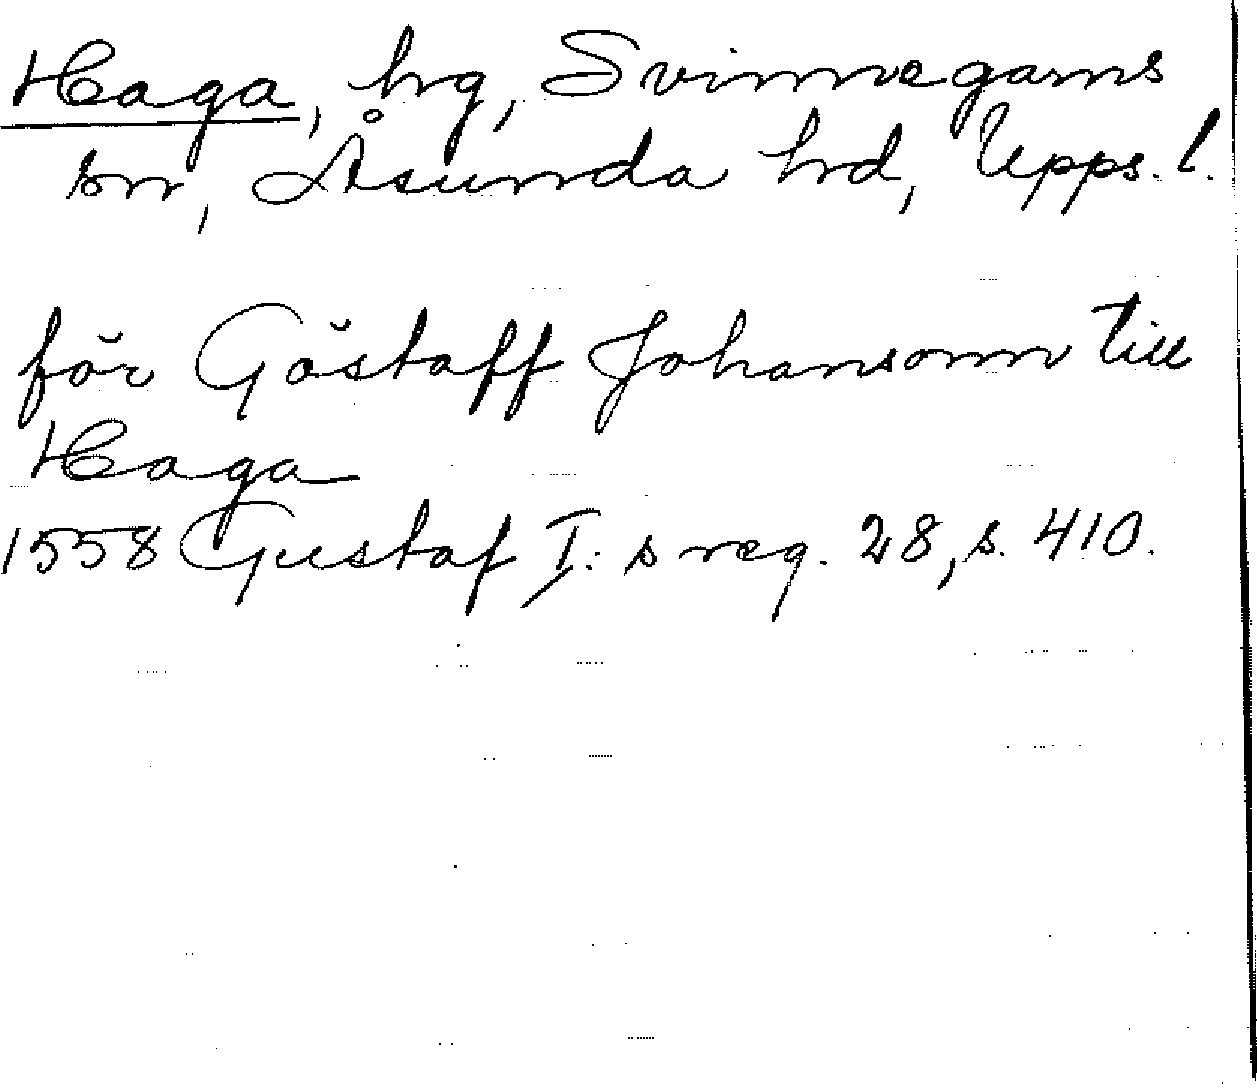 Haga, hrg, Svinnegarns
sn, Åsunda hrd, Upps. l.
för Göstaff Johansonn till
Haga
1558 Gustaf I: s reg. 28, s. 410.